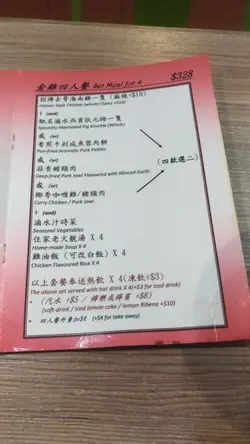 金雞四人餐 Set Meal for 4
$328
招牌去骨海南雞一隻 (麻辣+$16)
Hainan Style Chicken (whole) (Spicy +$16)
+ (and)
馳名滷水西貢豬元蹄一隻
Specialty Marinated Pig Knuckle (Whole)
或 (or)
香煎手剁咸魚蓉肉餅
Pan-fried Aromatic Pork Patties
或 (or)
(四款選二)
蒜香豬頸肉
Deep-fried Pork Jowl Flavoured with Minced Garlic
或 (or)
椰香咖喱雞/豬頸肉
Curry Chicken / Pork Jowl
+ (and)
滷水汁時菜
Seasonal Vegetables
住家老火靚湯 X 4
Home-made Soup X 4
雞油飯 (可改白飯) X 4
Chicken Flavoured Rice X 4
以上套餐奉送熱飲 X 4(凍飲+$3)
The above set served with hot drink X 4(+$3 for iced drink)
• (汽水 +$5 / 檸樂或檸賓 +$8)
(soft-drink / iced lemon coke / lemon Ribena +$10)
• 四人餐外賣加$4 (+$4 for take away)